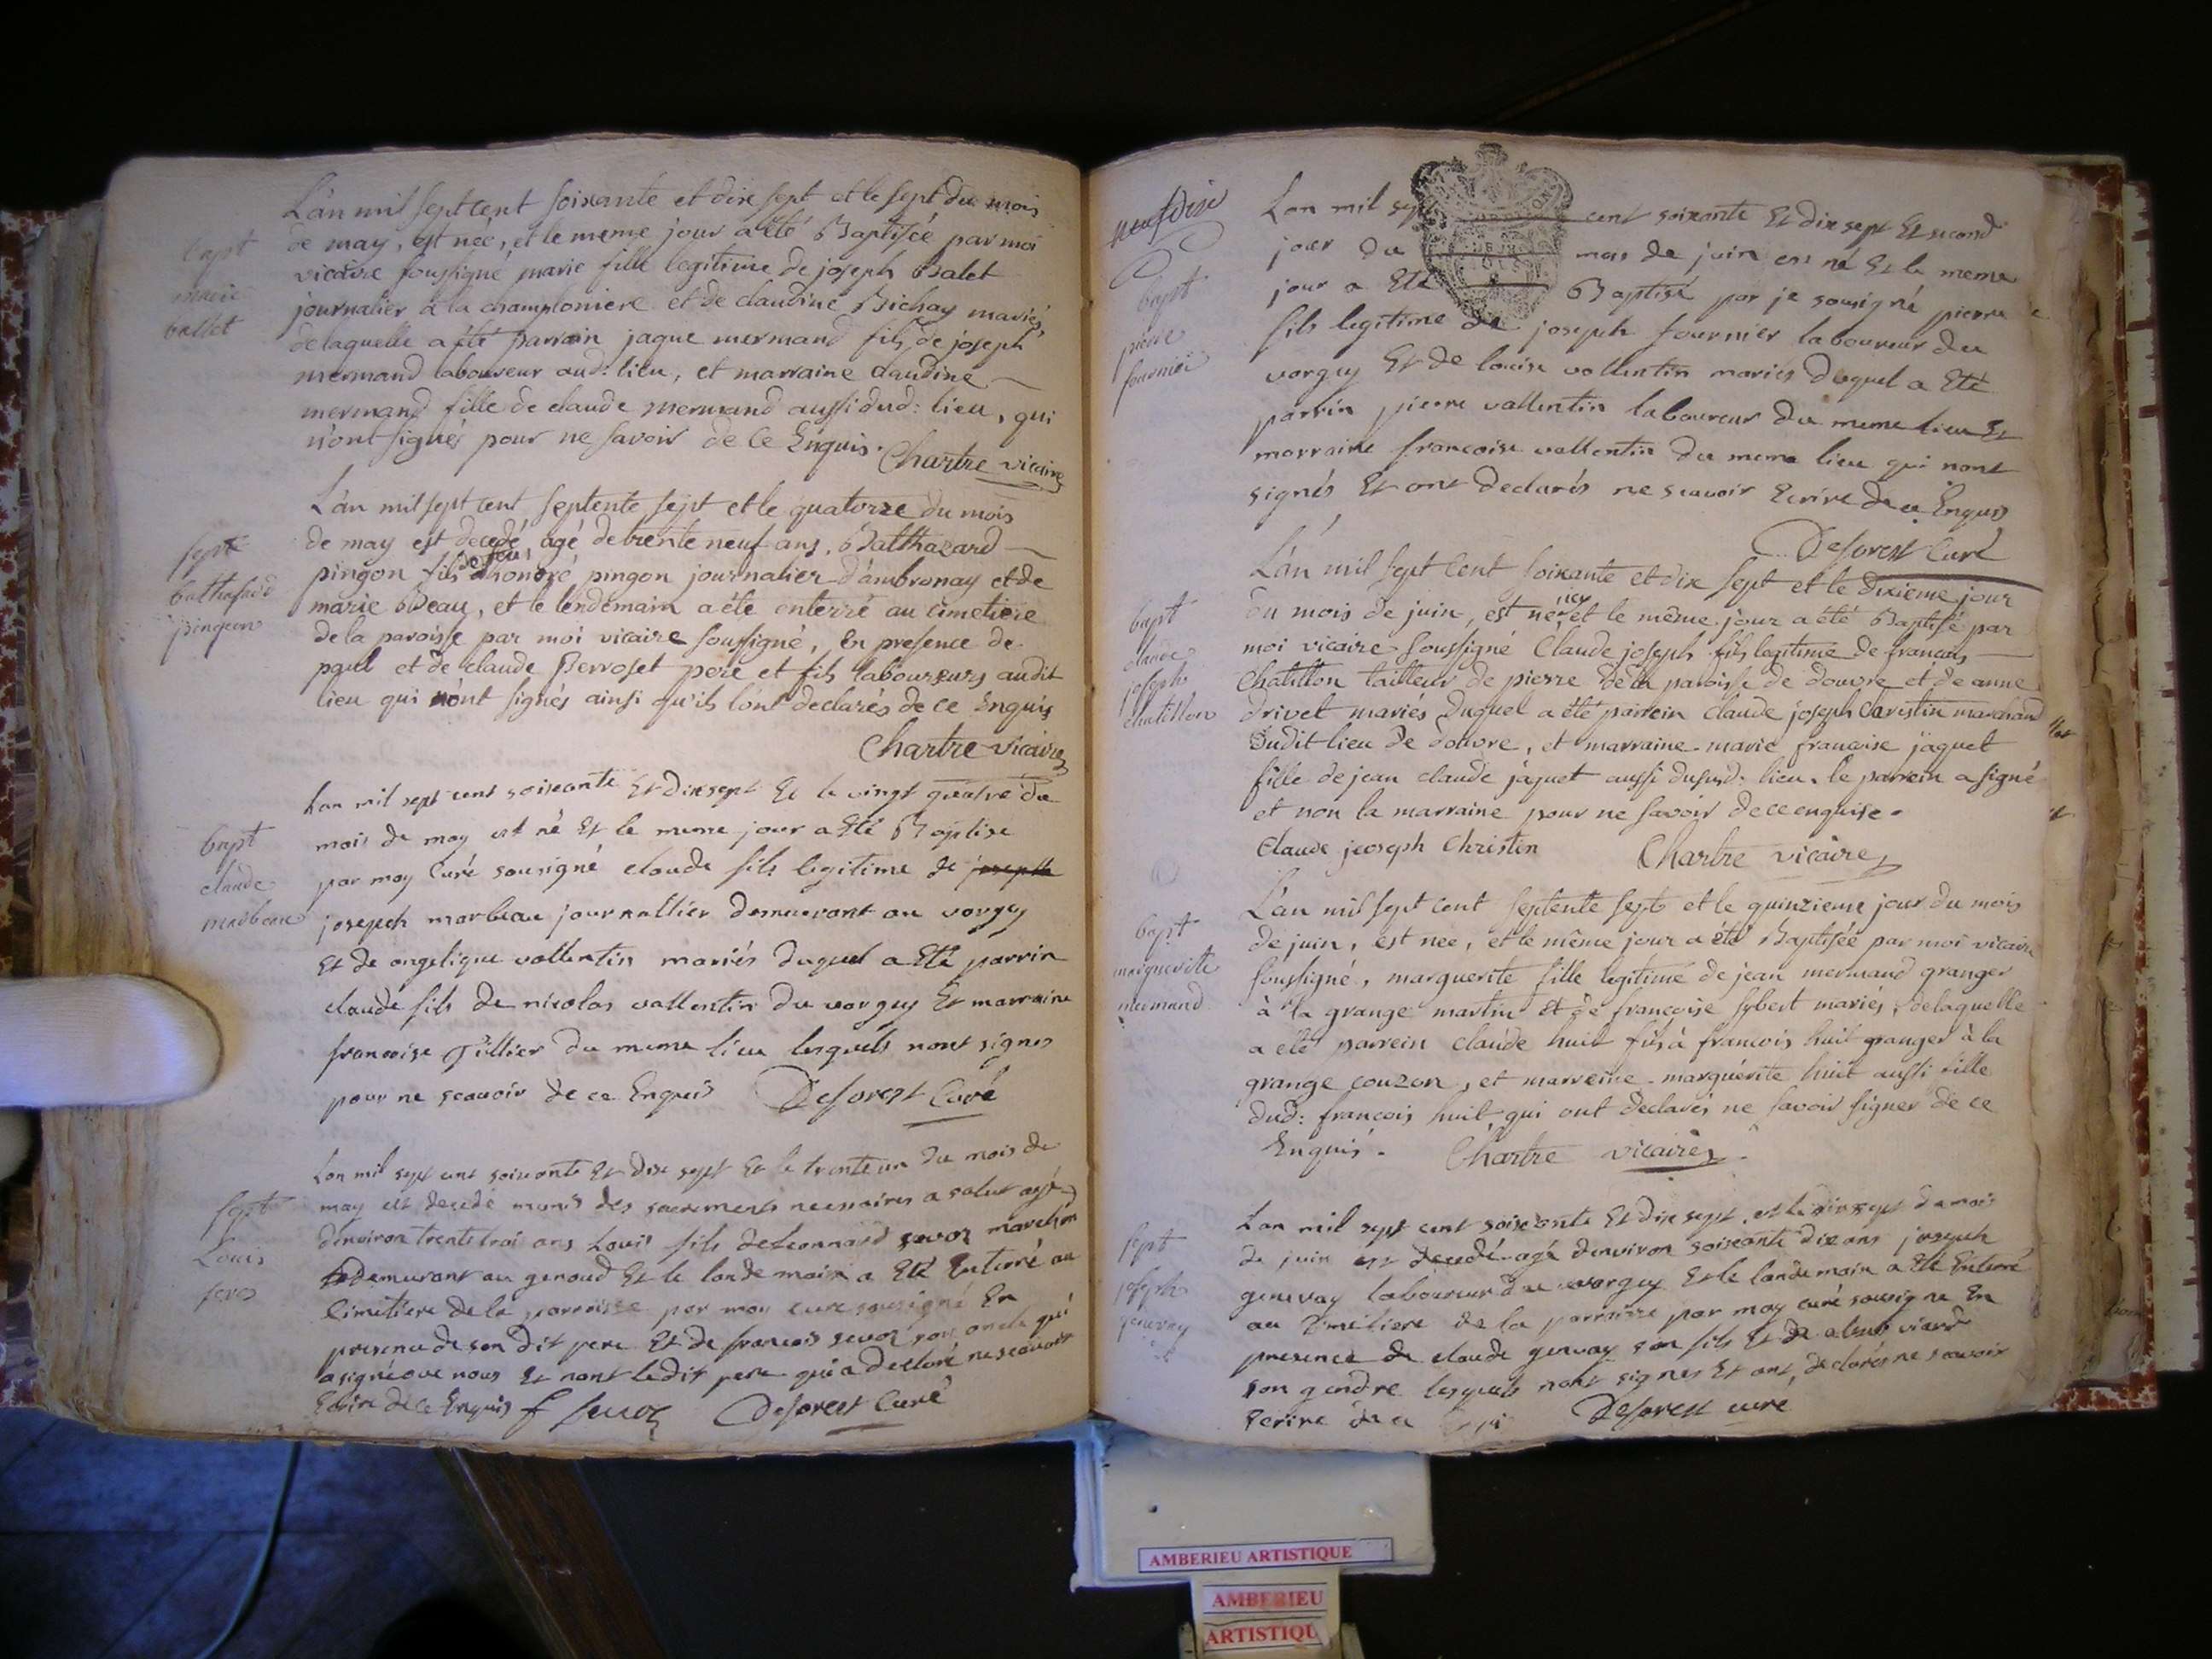 L'an mil sept cent soixante et dix sept et le sept du mois
de may, est née, et le meme jour a été Baptisée par moi
vicaire soussigné marie fille legitime de joseph Balet
journalier a la championiere et de claudine Bichay mariés
de laquelle a été parrain jaque mermand fils de joseph
mermand laboureur aud: lieu, et marraine claudine
mermand fille de claude mermand aussi dud: lieu, qui
n'ont signés pour ne savoir de ce Enquis. Chartre vicaire
bapt
marie
ballet
L'an mil sept cent septente sept et le quatorze du mois
de may est decedé agé de trente neuf ans, Balthazard
pingon fils de feu honoré pingon journalier d'ambronay et de
marie Beau, et le lendemain a été enterré au cimetiere
de la paroisse par moi vicaire soussigné, En presence de
paul et de claude Perroset pere et fils laboureurs audit
lieu qui n'ont signés ainsi qu'ils l'ont declarés de ce Enquis
Chartre vicaire
sept
balthasard
pingeon
Lan mil sept cent soixante Et dix sept Et le vingt quatre du
mois de may est né Et le meme jour a Eté Baptise
par moy Curé sousigné claude fils legitime de joseph
joseph marbeau journallier demeurant au vorgey
Et de angelique vallentin mariés duquel a Eté parrin
claude fils de nicolas vallentin du vorgey Et marraine
francoise Tillier du meme lieu lesquels nont signes
pour ne scavoir de ce Enquis Deforest Curé
bapt
claude
marbeau
Lan mil sept cent soixante Et dix sept Et le trente un du mois de
may est decedé munis des sacrements necessaires a salut agé
denviron trente trois ans Louis fils de Leonnard sevoz
demeurant au genoud Et le landemain a Eté Enterré au
Cimetiere de la parroisse par moy cure sousigné En
presence de son dit pere Et de francois sevoz son oncle qui
a signé ave nous Et nont ledit pere qui a declaré ne scavoir
Ecrire de ce Enquis f sevoz Deforest Curé
sept
Louis
sevos
neuf dixe
Lan mil sept cent soixante Et dix sept Et second
jour du mois de juin est né Et le meme
jour a Eté Baptisé par je sousigné pierre
fils legitime de joseph fournier laboureur du
vorgey Et de louise vallentin mariés duquel a Eté
parrin pierre vallentin laboureur du meme lieu Et
marraine francoise vallentin du meme lieu qui nont
signés Et ont declarés ne scavoir Ecrire de ce Enquis
Deforest Curé
bapt
pierre
fournier
L'an mil sept cent soixante et dix sept et le dixieme jour
du mois de juin, est né, et le même jour a été Baptisé par
moi vicaire soussigné Claude joseph fils legitime de francois
Chatillon tailleur de pierre de la paroisse de douvre et de anne
drivet mariés duquel a été parrein claude joseph Christin marchand
dudit lieu de douvre, et marraine marie francoise jaquet
fille de jean claude jaquet aussi dususd: lieu. le parrein a signé
et non la marraine pour ne savoir de ce enquise.
Claude jeoseph Christin Chartre vicaire
bapt
claude
joseph
chatillon
L'an mil sept cent septente sept et le quinzieme jour du mois
de juin, est nee, et le même jour a été Baptisée par moi vicaire
soussigné, marguerite fille legitime de jean mermand granger
à la grange martin et de francoise sybert mariés, de laquelle
a été parrein claude huit fils à francois huit granger à la
grange couzon, et marreine marguérite huit aussi fille
dud: francois huit, qui ont declarés ne savoir signer de ce
Enquis. Chartre vicaire
bapt
marguerite
mermand
Lan mil sept cent soixante Et dix sept, et le dix sept du mois
de juin est decedé agé denviron soixante dix ans joseph
genevay laboureur du vorgey Et le landemain a Eté Enterré
au Cimetiere de la parroisse par moy curé sousigne En
presence de claude genevay son fils Et de viard
son gendre lesquels nont signes Et ont declarés ne scavoir
Ecrire de ce Deforest curé
sept
joseph
genevay
AMBERIEU ARTISTIQUE
AMBERIEU
ARTISTIQU